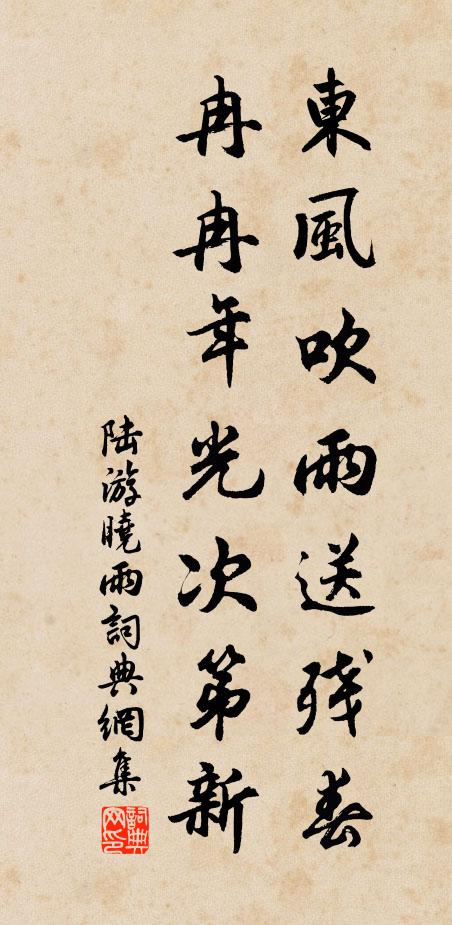 東風吹雨送残春
冉冉年光次第新
陆游曉雨詞典網集
詞典
网印